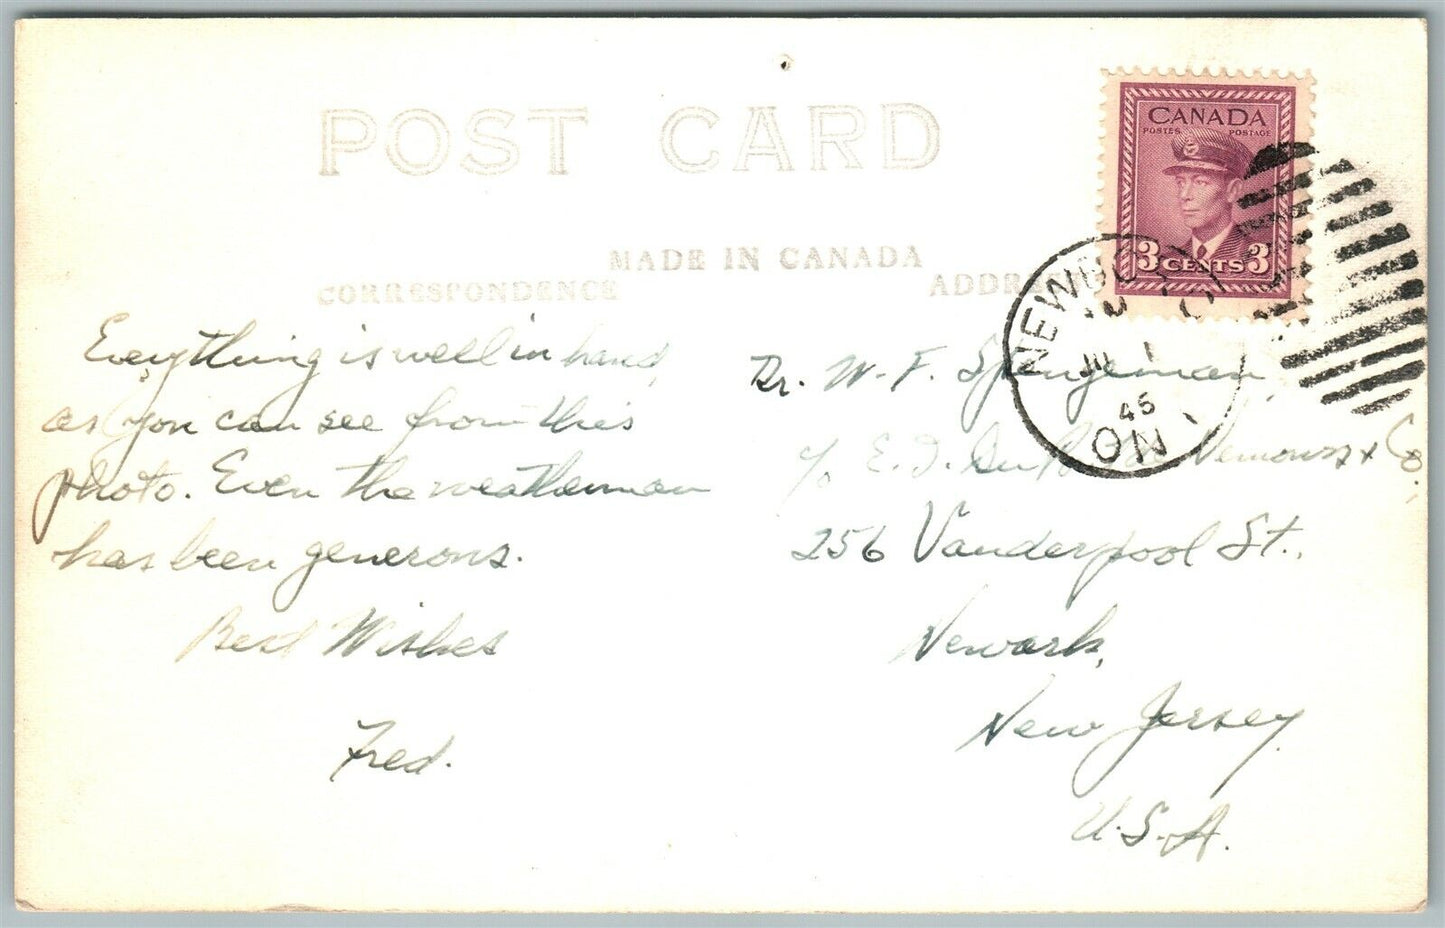 POST CARD
MADE IN CANADA
CORRESPONDENCE
ADDRESS
CANADA
POSTES POSTAGE
3 CENTS 3
NEWBO
JU 1
45
ON
Everything is well in hand,
as you can see from this
photo. Even the weatherman
has been generous.
Best Wishes
Fred.
Dr. W. F. Spengeman,
c/o E. I. Du Nemours & Co.,
256 Vanderpool St.,
Newark,
New Jersey.
U.S.A.